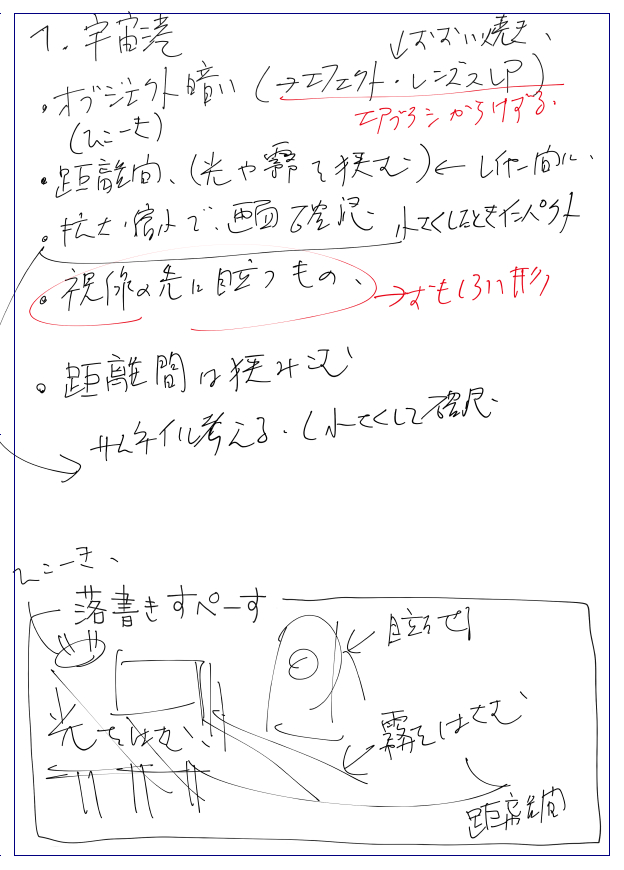 1. 宇宙港
おおい焼き、
・オブジェクト暗い (→エフェクト・レンズスLP)
(ひこーき)
エアブラシからけずる.
・距離間、(光や霧を挟む) ← レイヤー間に、
・拡大・縮小で、画面確認. 小さくしたときインパクト
・視線の先に目立つもの、
→おもしろい形
・距離間は挟みこむ
サムネイル考える. (小さくして確認.
ひこーき、
落書きすぺーす
目立たせ
光をはさむ、
霧をはさむ
距離間